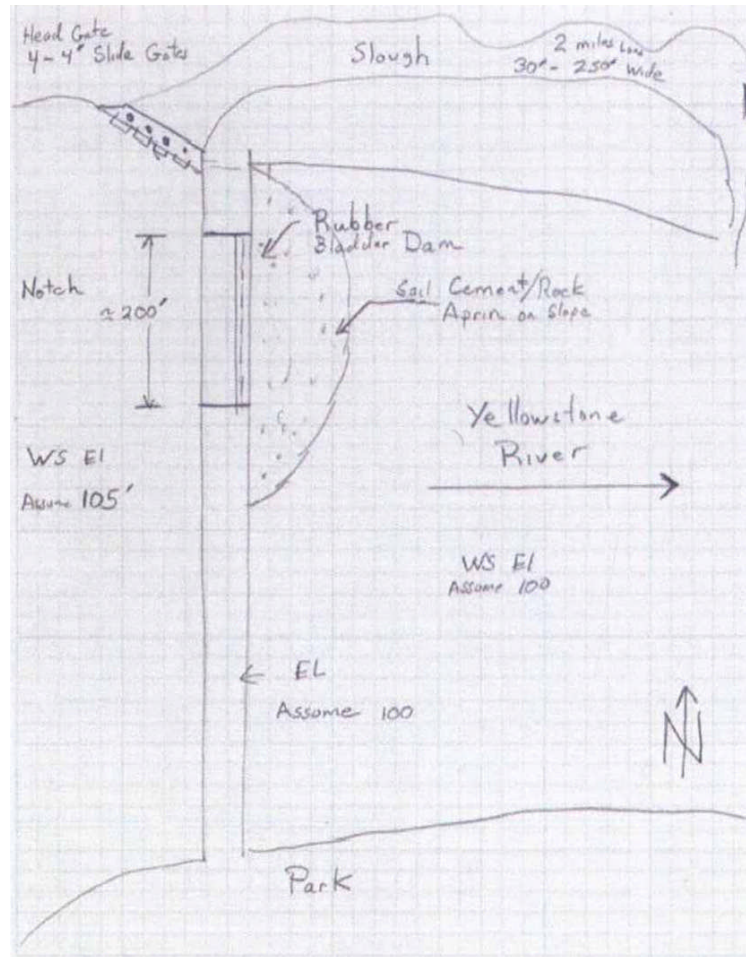 Head Gate
4-4' Slide Gates
Slough
2 miles Long
30'- 250' Wide
Rubber
Bladder Dam
Soil Cement/Rock
Apron on Slope
Notch
≈ 200'
Yellowstone
River
WS El
Assume 105'
WS El
Assume 100
EL
Assume 100
N
Park